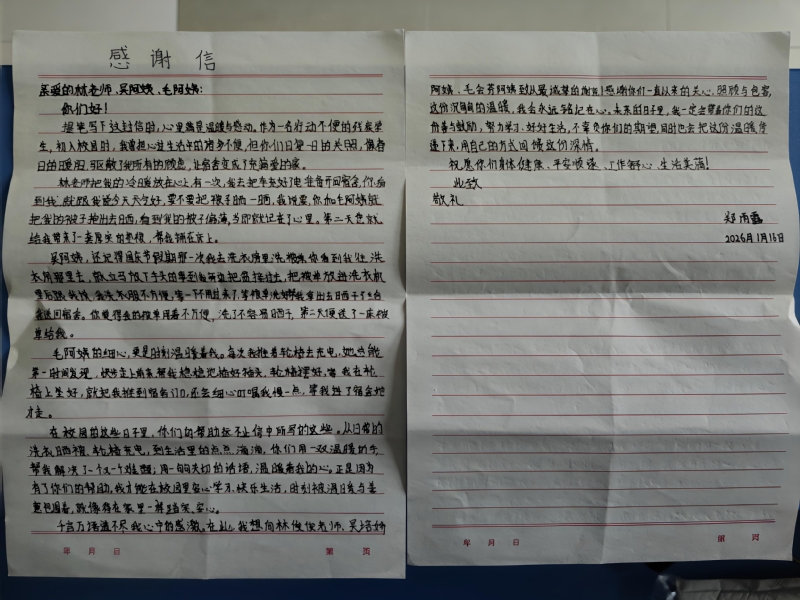 感谢信
亲爱的林老师、吴阿姨、毛阿姨:
你们好!
提笔写下这封信时,心里满是温暖与感动。作为一名行动不便的残疾学
生,初入校园时,我曾担心生活中的诸多不便,但你们日复一日的关照,像春
日的暖阳,驱散了我所有的顾虑,让宿舍变成了充满爱的家。
林老师把我的冷暖放在心上,有一次,我去把车充好了电准备开回宿舍,你看
到我,就跟我说今天天气好,要不要把被子晒一晒,我说要,你加毛阿姨就
把我的被子抱出去晒,看到我的被子偏薄,当即就记在了心里。第二天您就
给我带来了一套厚实的垫被,帮我铺在床上。
吴阿姨,还记得国庆节假期那一次我去洗衣房里洗被单你看到我往洗
衣房那里去,就立马放下手头的事到我旁边把盆接过去,把被单放进洗衣机
里后跟我说,
送回宿舍。你觉得我的被单用着不方便,洗了不容易晒干,第二天便送了一床被
单给我。
毛阿姨的细心,更是时刻温暖着我。每次我推着轮椅去充电,她总能
第一时间发现,快步走上前来帮我稳稳地插好插头,轮椅摆好,等我在轮
椅上坐好,就把我推到宿舍门口,还会细心叮嘱我慢一点,等我进了宿舍她
才走。
在校园的这些日子里,你们的帮助远不止信中所写的这些。从日常的
洗衣晒被、轮椅充电,到生活里的点点滴滴,你们用一双温暖的手
帮我解决了一个又一个难题;用一句句关切的话语,温暖着我的心。正是因为
有了你们的帮助,我才能在校园里安心学习、快乐生活,时刻被温暖与善
意包围着,就像待在家里一样踏实、安心。
千言万语道不尽我心中的感激。在此,我想向林俊俊老师、吴培娇
年 月 日 第 页
阿姨、毛会芳阿姨致以最诚挚的谢意!感谢你们一直以来的关心、照顾与包容,
这份沉甸甸的温暖,我会永远铭记在心。未来的日子里,我一定会带着你们的这
份善与鼓励,努力学习、好好生活,不辜负你们的期望,同时也会把这份温暖传
递下来,用自己的方式回馈这份深情。
祝愿你们身体健康、平安顺遂、工作舒心、生活美满!
此致
敬礼
郑雨露
2026年1月15日
年 月 日 第 页